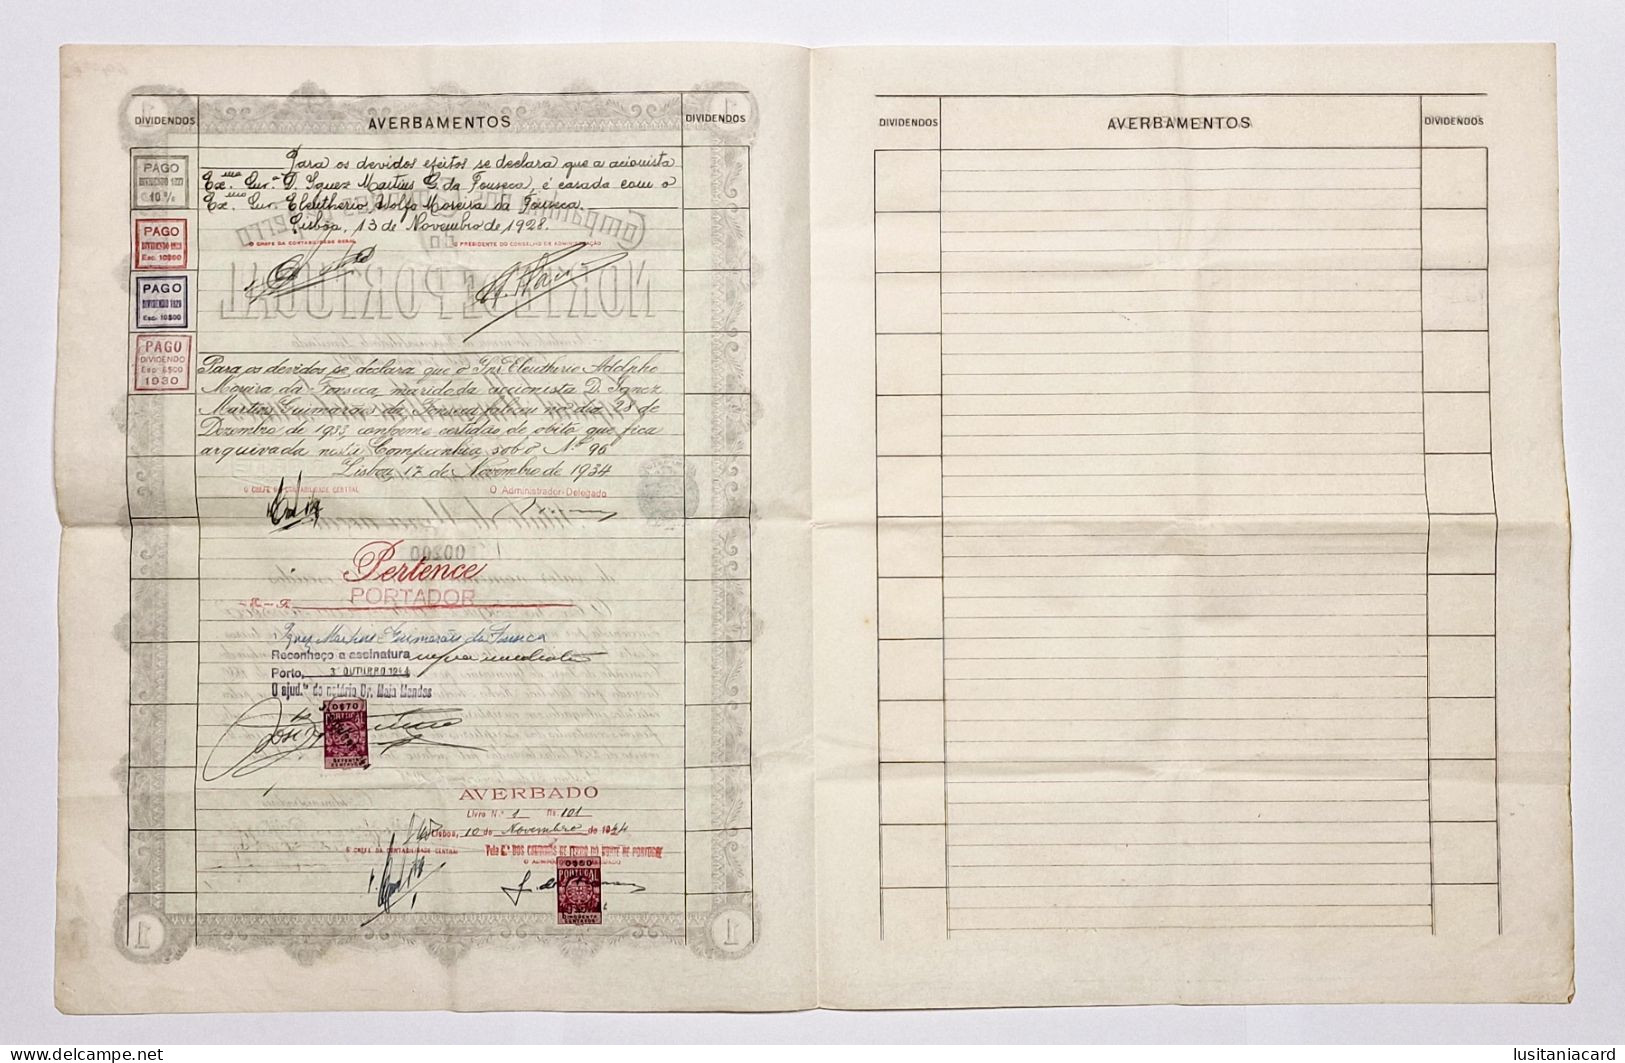 DIVIDENDOS
AVERBAMENTOS
DIVIDENDOS
PAGO
DIVIDENDO 1927
10%
PAGO
DIVIDENDO 1928
Esc. 10$00
PAGO
DIVIDENDO 1929
Esc. 10$00
PAGO
DIVIDENDO
Esc. 6$00
1930
Para os devidos efeitos se declara que a acionista
Ex.ma Snr.a D. Ignez Martins G. da Fonseca, é casada com o
Ex.mo Snr. Eleutherio Adolfo Moreira da Fonseca.
Lisbôa, 13 de Novembro de 1928.
O CHEFE DA CONTABILIDADE GERAL
O PRESIDENTE DO CONSELHO DE ADMINISTRAÇÃO
Companhia dos Caminhos de Ferro
do
NORTE DE PORTUGAL
Para os devidos se declara que o Snr. Eleutherio Adolpho
Moreira da Fonseca, marido da accionista D. Ignez
Martins Guimarães da Fonseca, faleceu no dia 28 de
Dezembro de 1933, conforme certidão de obito que fica
arquivada nesta Companhia sob o N.º 96
Lisboa, 17 de Novembro de 1934
O CHEFE DA CONTABILIDADE CENTRAL
O Administrador-Delegado
00200
Pertence
PORTADOR
Ignez Martins Guimarães da Fonseca
Reconheço a assinatura supra
Porto, 3 OUTUBRO 1944
O ajud.te do notário Dr. Maia Mendes
0$70
PORTUGAL
SETENTA
CENTAVOS
AVERBADO
Livro N.º 1 fls. 101
Lisboa, 10 de Novembro de 1944
O CHEFE DA CONTABILIDADE CENTRAL
Pela C.ª DOS CAMINHOS DE FERRO DO NORTE DE PORTUGAL
0$50
PORTUGAL
CINQUENTA
CENTAVOS
1
1
1
1
DIVIDENDOS
AVERBAMENTOS
DIVIDENDOS
www.delcampe.net
lusitaniacard